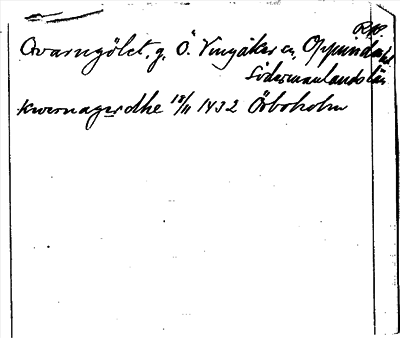 R.A.
Qvarngölet, g, Ö. Vingåker sn, Oppunda hd
Södermanlands län
Kwernagerdhe 18/11 1432 Örboholm